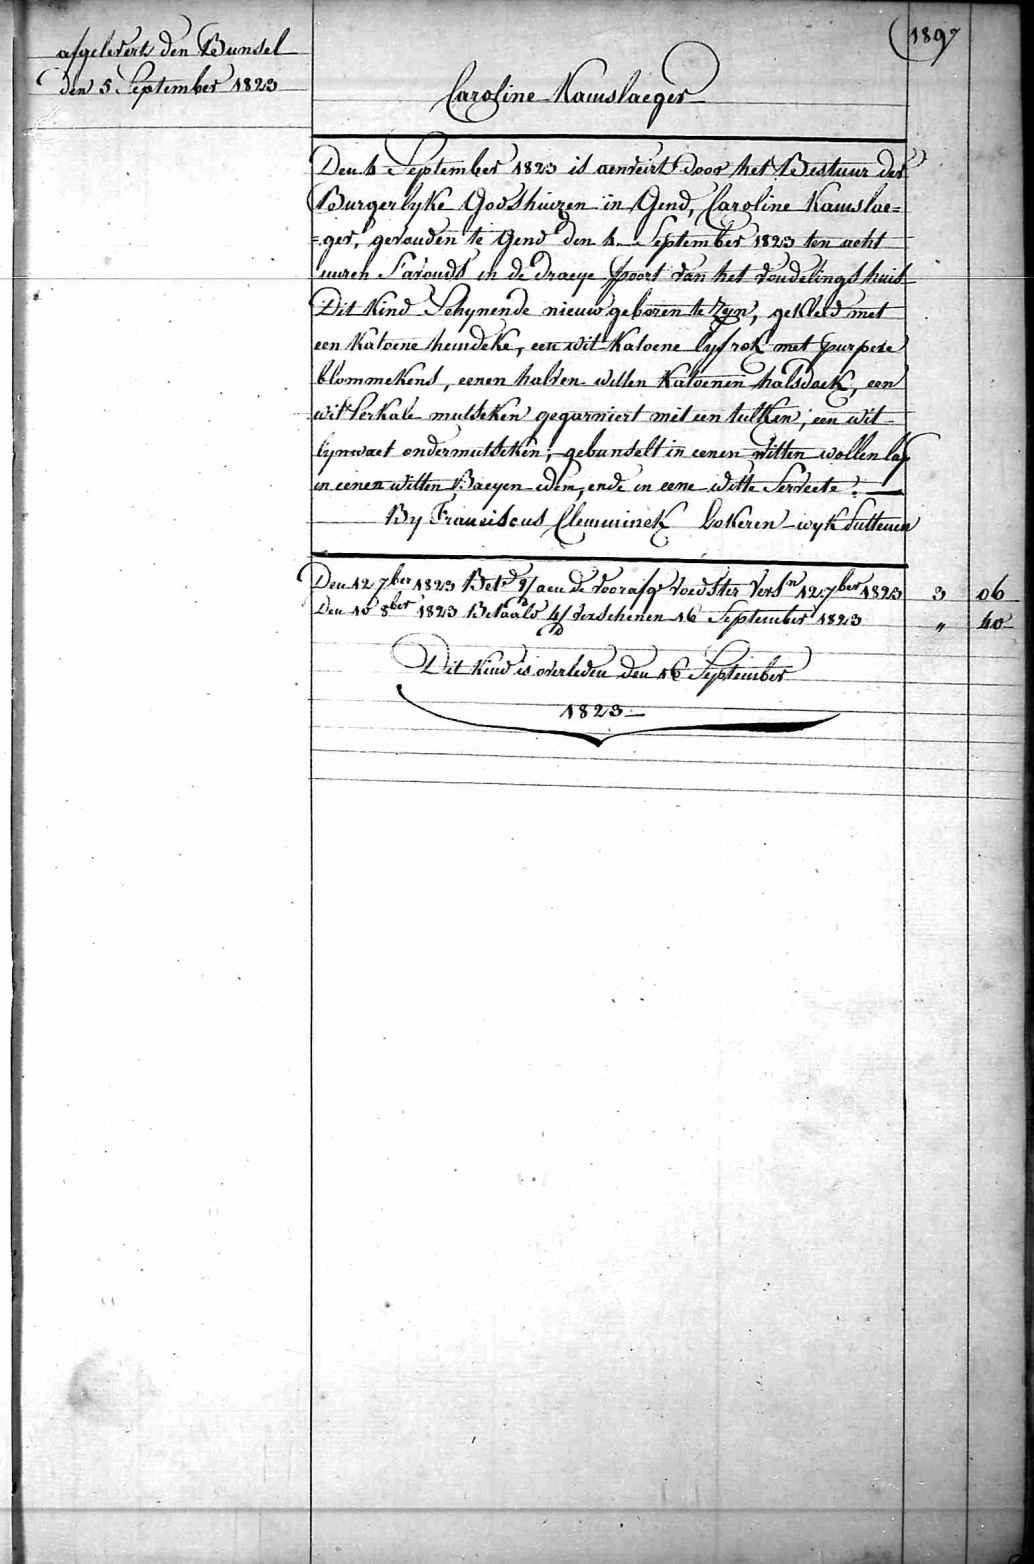 afgelevert den Bunsel
den 5 September 1823
1897
Caroline Kamslaeger
Den 4 September 1823 is aenveirt door het Bestuur der
Burgerlyke Godshuizen in Gend, Caroline Kamslae=
=ger, gevonden te Gend den 4 September 1823 ten acht
uuren S'avonds in de draeye poort van het vondelingshuis
Dit Kind Schynende nieuw geboren te zyn, gekleed met
een Katoene hemdeke, een wit Katoene lyfrok met purpere
blommekens, eenen halven witten Katoenen halsdoek, een
wit Perkale mutseken gegarniert met een tulken, een wit
lynwaet ondermutseken, gebunselt in eenen witten wollen lap
in eenen witten Baeyen idem, ende in eene witte Serviete.
By Franciscus Clemminck Lokeren wyk
Den 12 7ber 1823 Betd aen de voorafge voedster Versn 12 7ber 1823 3 06
Den 10 8ber 1823 Betaald 4/d verschenen 16 September 1823 " 40
Dit Kind is overleden den 16 September
1823